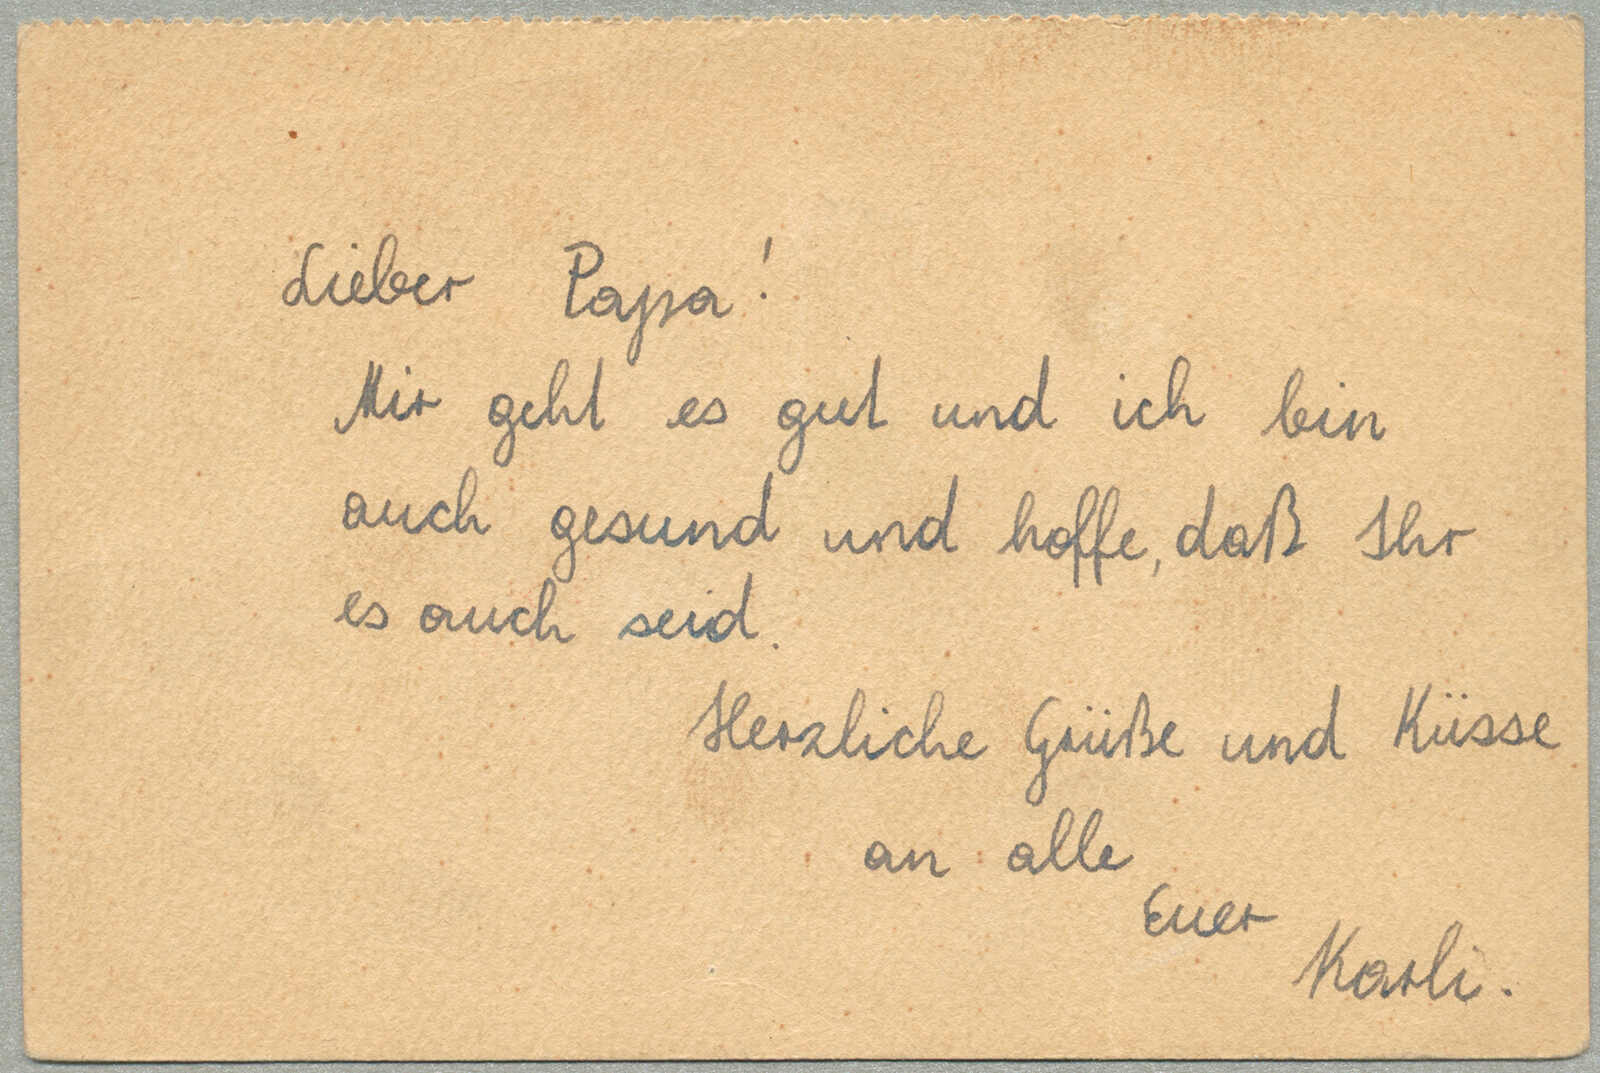 Lieber Papa!
Mir geht es gut und ich bin
auch gesund und hoffe, daß Ihr
es auch seid.
Herzliche Grüße und Küsse
an alle
Euer
Karli.